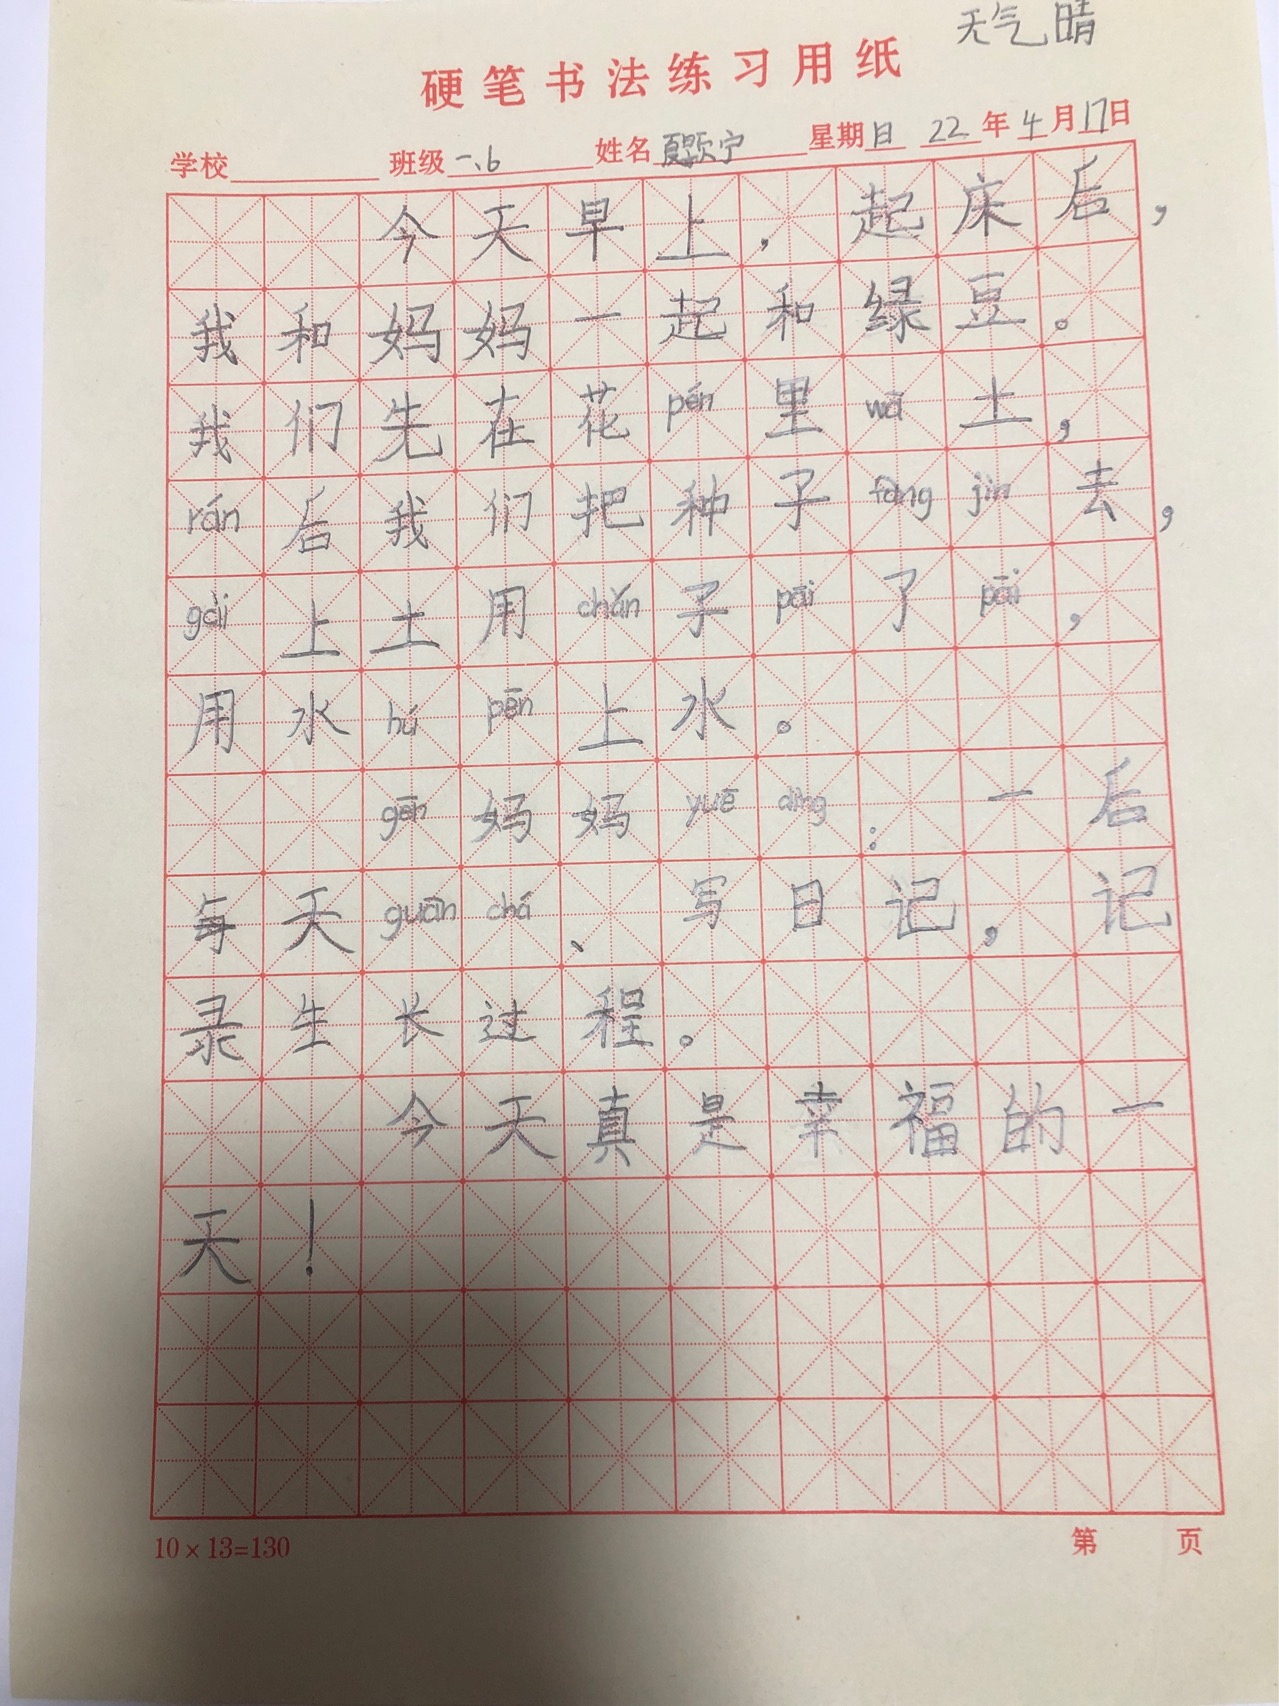 天气晴
硬笔书法练习用纸
学校 班级一、6 姓名 夏歆宁 星期日 22年4月17日
今天早上，起床后，
我和妈妈一起和绿豆。
我们先在花pén里wā土，
rán后我们把种子fàng jìn去，
gài上土用chǎn子pāi了pāi，
用水hú pēn上水。
gēn妈妈yuē dìng：一后
每天guān chá、写日记，记
录生长过程。
今天真是幸福的一
天！
10×13=130 第 页